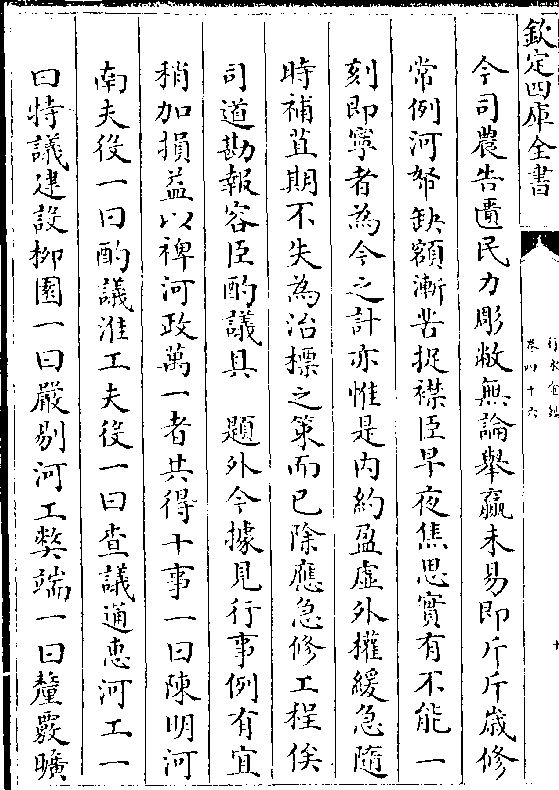 欽定四庫全書
行水金鑑
卷四十六
今司農告匱民力彫敝無論舉贏未易即斤斤歲修
常例河帑缺額漸苦捉襟臣早夜焦思實有不能一
刻即寧者為今之計亦惟是內約盈虛外權緩急隨
時補苴期不失為治標之策而已除應急修工程俟
司道勘報容臣酌議具　題外今據見行事例有宜
稍加損益以裨河政萬一者共得十事一曰陳明河
南夫役一曰酌議淮工夫役一曰查議通惠河工一
曰特議建設柳園一曰嚴剔河工弊端一曰釐覈曠